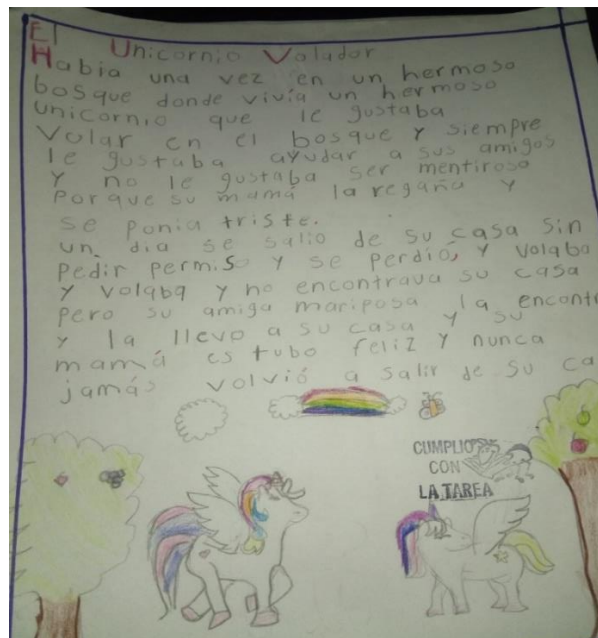 El
Unicornio Volador
Habia una vez en un hermoso
bosque donde vivía un hermoso
unicornio que le gustaba
Volar en el bosque y siempre
le gustaba ayudar a sus amigos
Y no le gustaba ser mentiroso
Porque su mamá la regaña y
se ponia triste.
un dia se salio de su casa sin
Pedir permiso y se perdió, y volaba
y volaba y no encontrava su casa
pero su amiga mariposa la encont
y la llevo a su casa y su
mamá estubo feliz y nunca
jamás volvió a salir de su ca
CUMPLIO
CON
LA TAREA